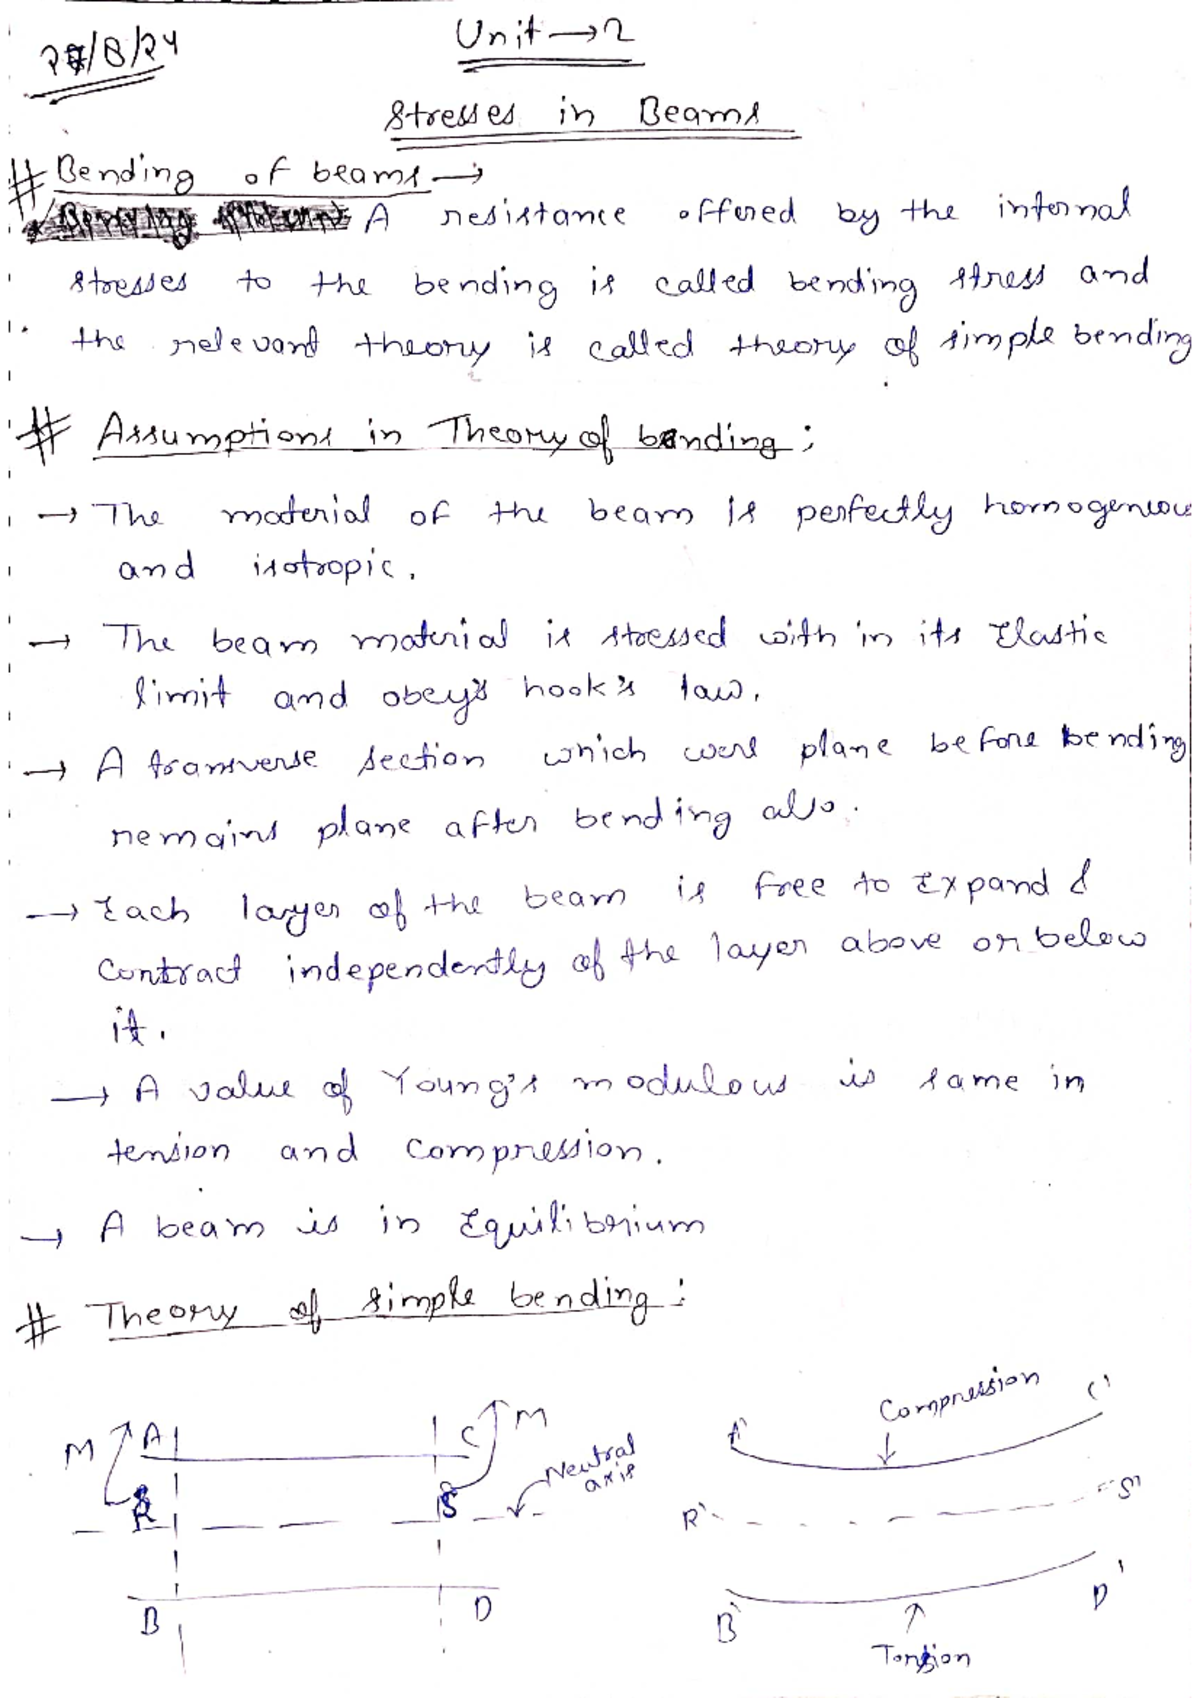 27/8/24
Unit → 2
Stresses in Beams
# Bending of beams →
A resistance offered by the internal
stresses to the bending is called bending stress and
the relevant theory is called theory of simple bending
# Assumptions in Theory of bending :
→ The material of the beam is perfectly homogeneou
and isotropic.
→ The beam material is stressed with in its Elastic
limit and obey's hook's law.
→ A transverse section which were plane before bending
remains plane after bending also.
→ Each layer of the beam is free to Expand &
Contract independently of the layer above or below
it.
→ A value of Young's modulous is same in
tension and compression.
→ A beam is in Equilibrium
# Theory of simple bending :
M A C M
R S Neutral
axis
B D
A' Compression C'
R' S'
B' D'
Tension